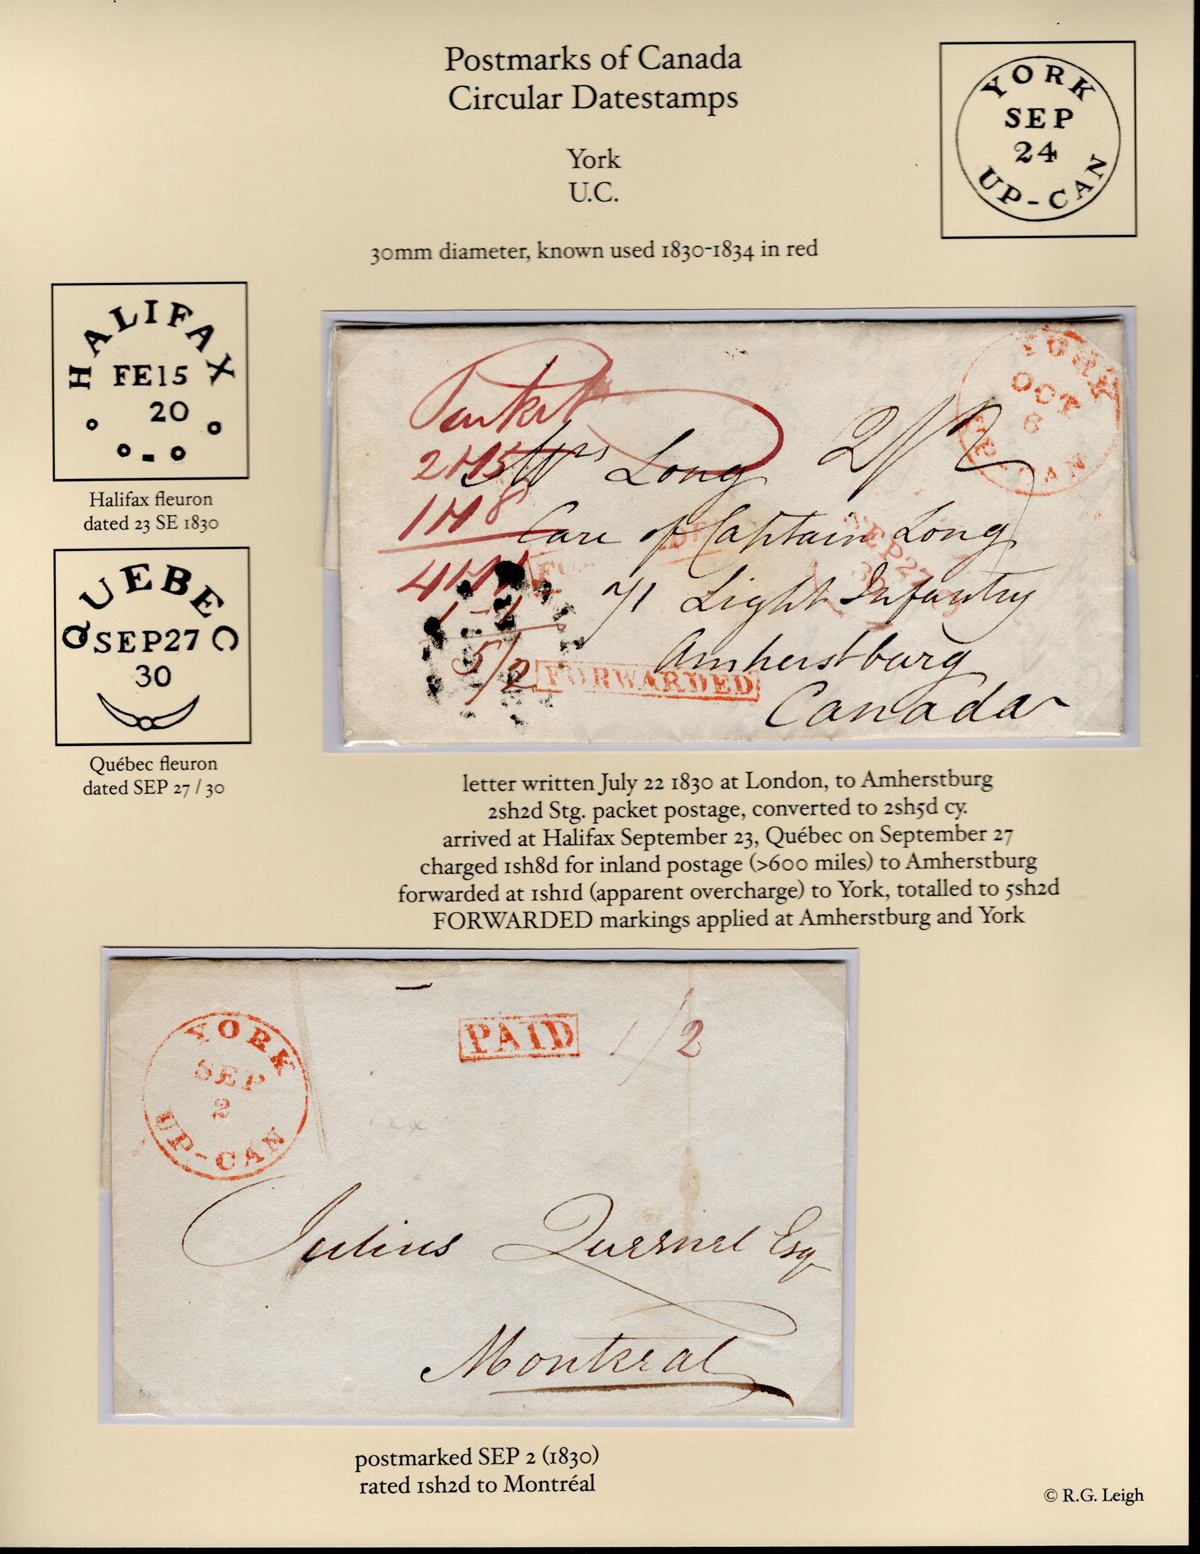 Postmarks of Canada
Circular Datestamps
York
U.C.
30mm diameter, known used 1830-1834 in red
YORK
SEP
24
UP-CAN
HALIFAX
FE15
20
Halifax fleuron
dated 23 SE 1830
QUEBEC
SEP27
30
Québec fleuron
dated SEP 27 / 30
YORK
OCT
6
UP-CAN
2/2
Mrs Long
Care of Captain Long
71 Light Infantry
Amherstburg
Canada
SEP27
30
5/2
FORWARDED
letter written July 22 1830 at London, to Amherstburg
2sh2d Stg. packet postage, converted to 2sh5d cy.
arrived at Halifax September 23, Québec on September 27
charged 1sh8d for inland postage (>600 miles) to Amherstburg
forwarded at 1sh1d (apparent overcharge) to York, totalled to 5sh2d
FORWARDED markings applied at Amherstburg and York
YORK
SEP
2
UP-CAN
PAID
1/2
Julius Quesnel Esq
Montreal
postmarked SEP 2 (1830)
rated 1sh2d to Montréal
© R.G. Leigh